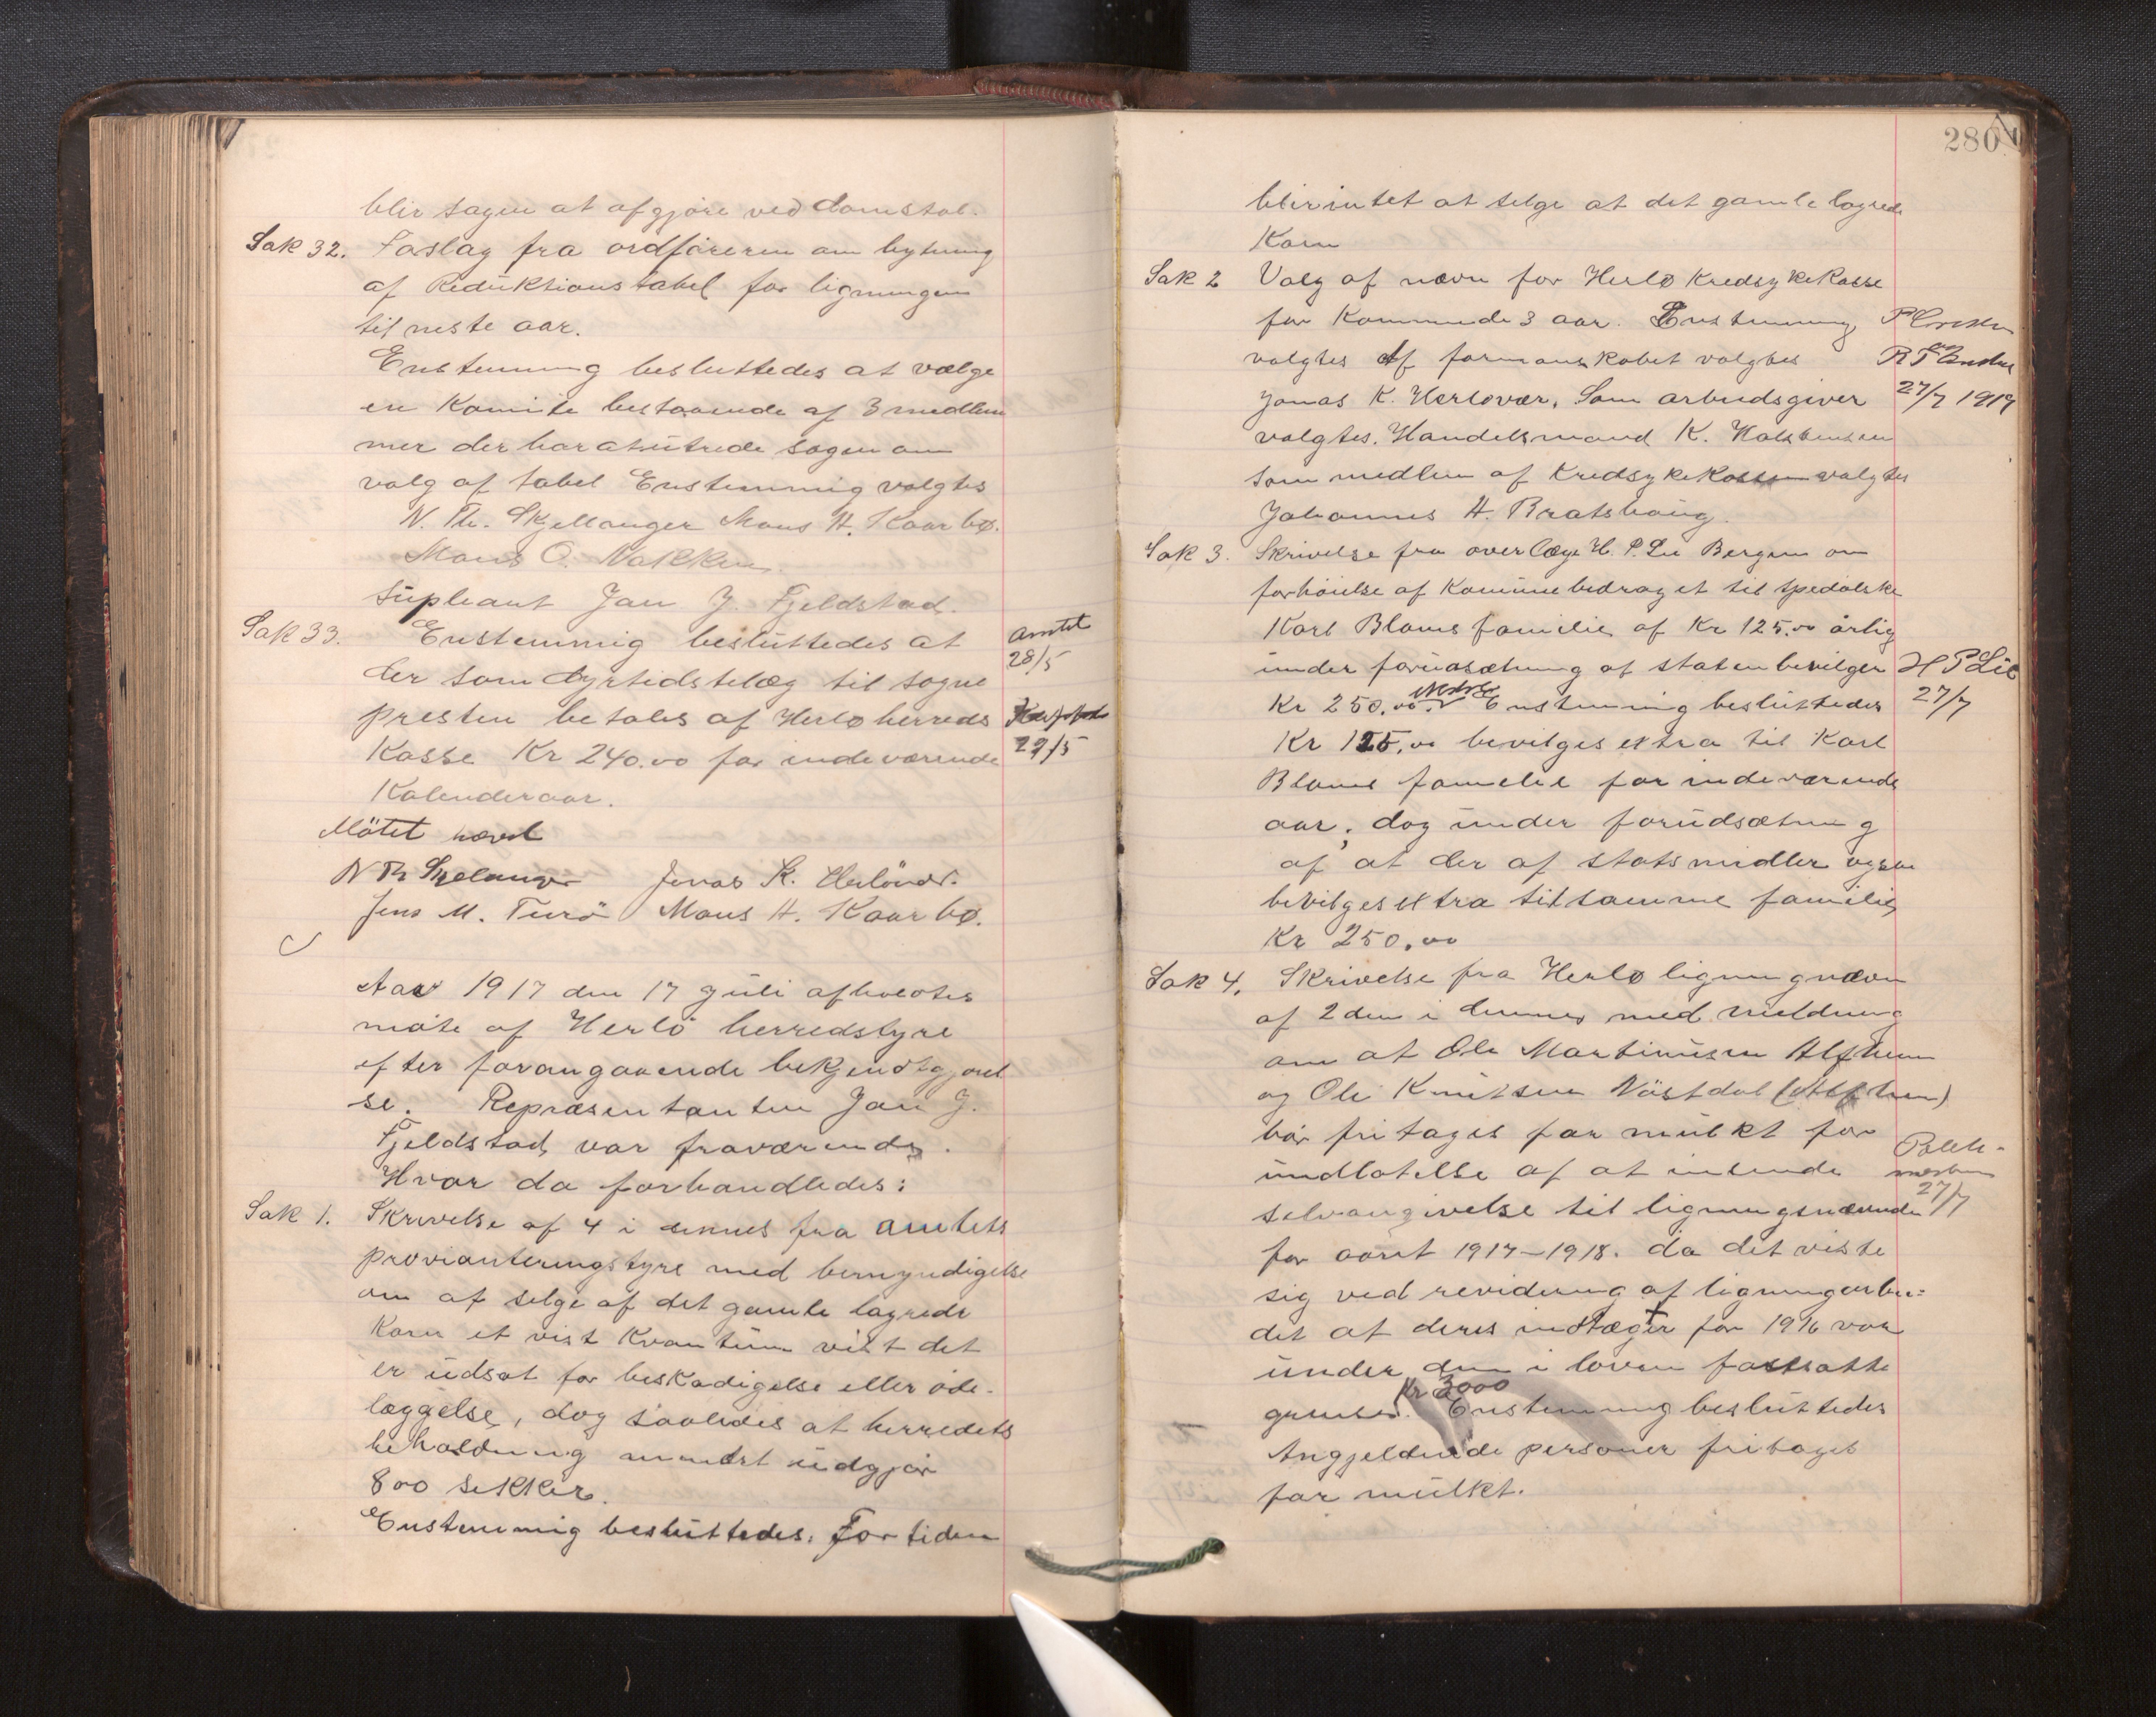 blir sagen at afgjøre ved domstol.
Sak 32. Foslag fra ordføreren om bytning
af Reduktionstabel for ligningen
til neste aar.
Enstemmig besluttedes at vælge
en Komite bestaaende af 3 medlem
mer der har at utrede sagen om
valg af tabel Enstemmig valgtes
N. Th. Skjellanger Mons H. Kaarbø.
Mons O. Nakken.
Supleant Jan J. Fjeldstad.
Sak 33. Enstemmig besluttedes at
der som dyrtidstelæg til sogne
presten betales af Herlø herreds
Kasse Kr 240.00 for indeværende
Kalenderaar.
Amtet
28/5
29/5
Mötet hævet
N Th Skjelanger Jonas K. Herlövær.
Jens M. Turö Mons H. Kaarbø.
Aar 1917 den 17 Juli afholdtes
møte af Herlö herredstyre
efter forangaaende bekjendtgjørel
se. Repræsentanten Jan J.
Fjeldstad var fraværende.
Hvor da forhandledes:
Sak 1. Skrivelse af 4 i dennes fra amtets
provianteringstyre med bemyndigelse
om at selge af det gamle lagrede
Korn et vist Kvantum vist det
er udsat for beskadigelse eller øde-
læggelse, dog saaledes at herredets
beholdning mindst udgjør
800 sekker.
Enstemmig besluttedes. For tiden
280
blir intet at selge at det gamle lagrede
Korn
Sak 2 Valg af nævn for Herlø Kredsykekasse
for Kommende 3 aar. Enstemmig
valgtes Af formanskabet valgtes
Jonas K. Herlovær. Som arbeidsgiver
valgtes. Handelsmand K.
som medlem af Kredsykekassen valgtes
Johannes H. Bratshaug.
27/7 1917
Sak 3. Skrivelse fra overlæge H. P. Lie Bergen om
forhöielse af Kommunebedraget til spedalske
Karl Bloms familie af Kr 125.00 årlig
under foruasætning af staten bevilger
Kr 250.00. Enstemmig besluttedes
Kr 125,00 bevilges extra til Karl
Bloms familie for indeværende
aar, dog under forudsætning
af at der af statsmidler også
bevilges extra til samme familie
Kr 250.00
H P Lie
27/7
Sak 4. Skrivelse fra Herlø ligningnævn
af 2den i dennes med meldning
om at Ole Martinusen Alfhem
og Ole Knutsen Nöstdal (Alfhem)
bör fritages for mulkt for
undlatelse af at insende
selvangivelse til ligningsnævnde
for aaret 1917-1918. da det viste
sig ved revidering af ligningarbei=
det at deres indtægter for 1916 var
under den i loven fastsatte
grense. Kr 3000 Enstemmig besluttedes
Angjeldende personer fritages
for mulkt.
27/7